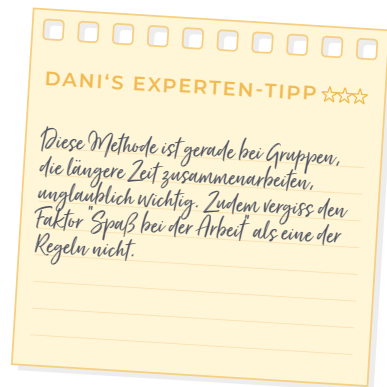 DANI'S EXPERTEN-TIPP
Diese Methode ist gerade bei Gruppen,
die längere Zeit zusammenarbeiten,
unglaublich wichtig. Zudem vergiss den
Faktor "Spaß bei der Arbeit" als eine der
Regeln nicht.